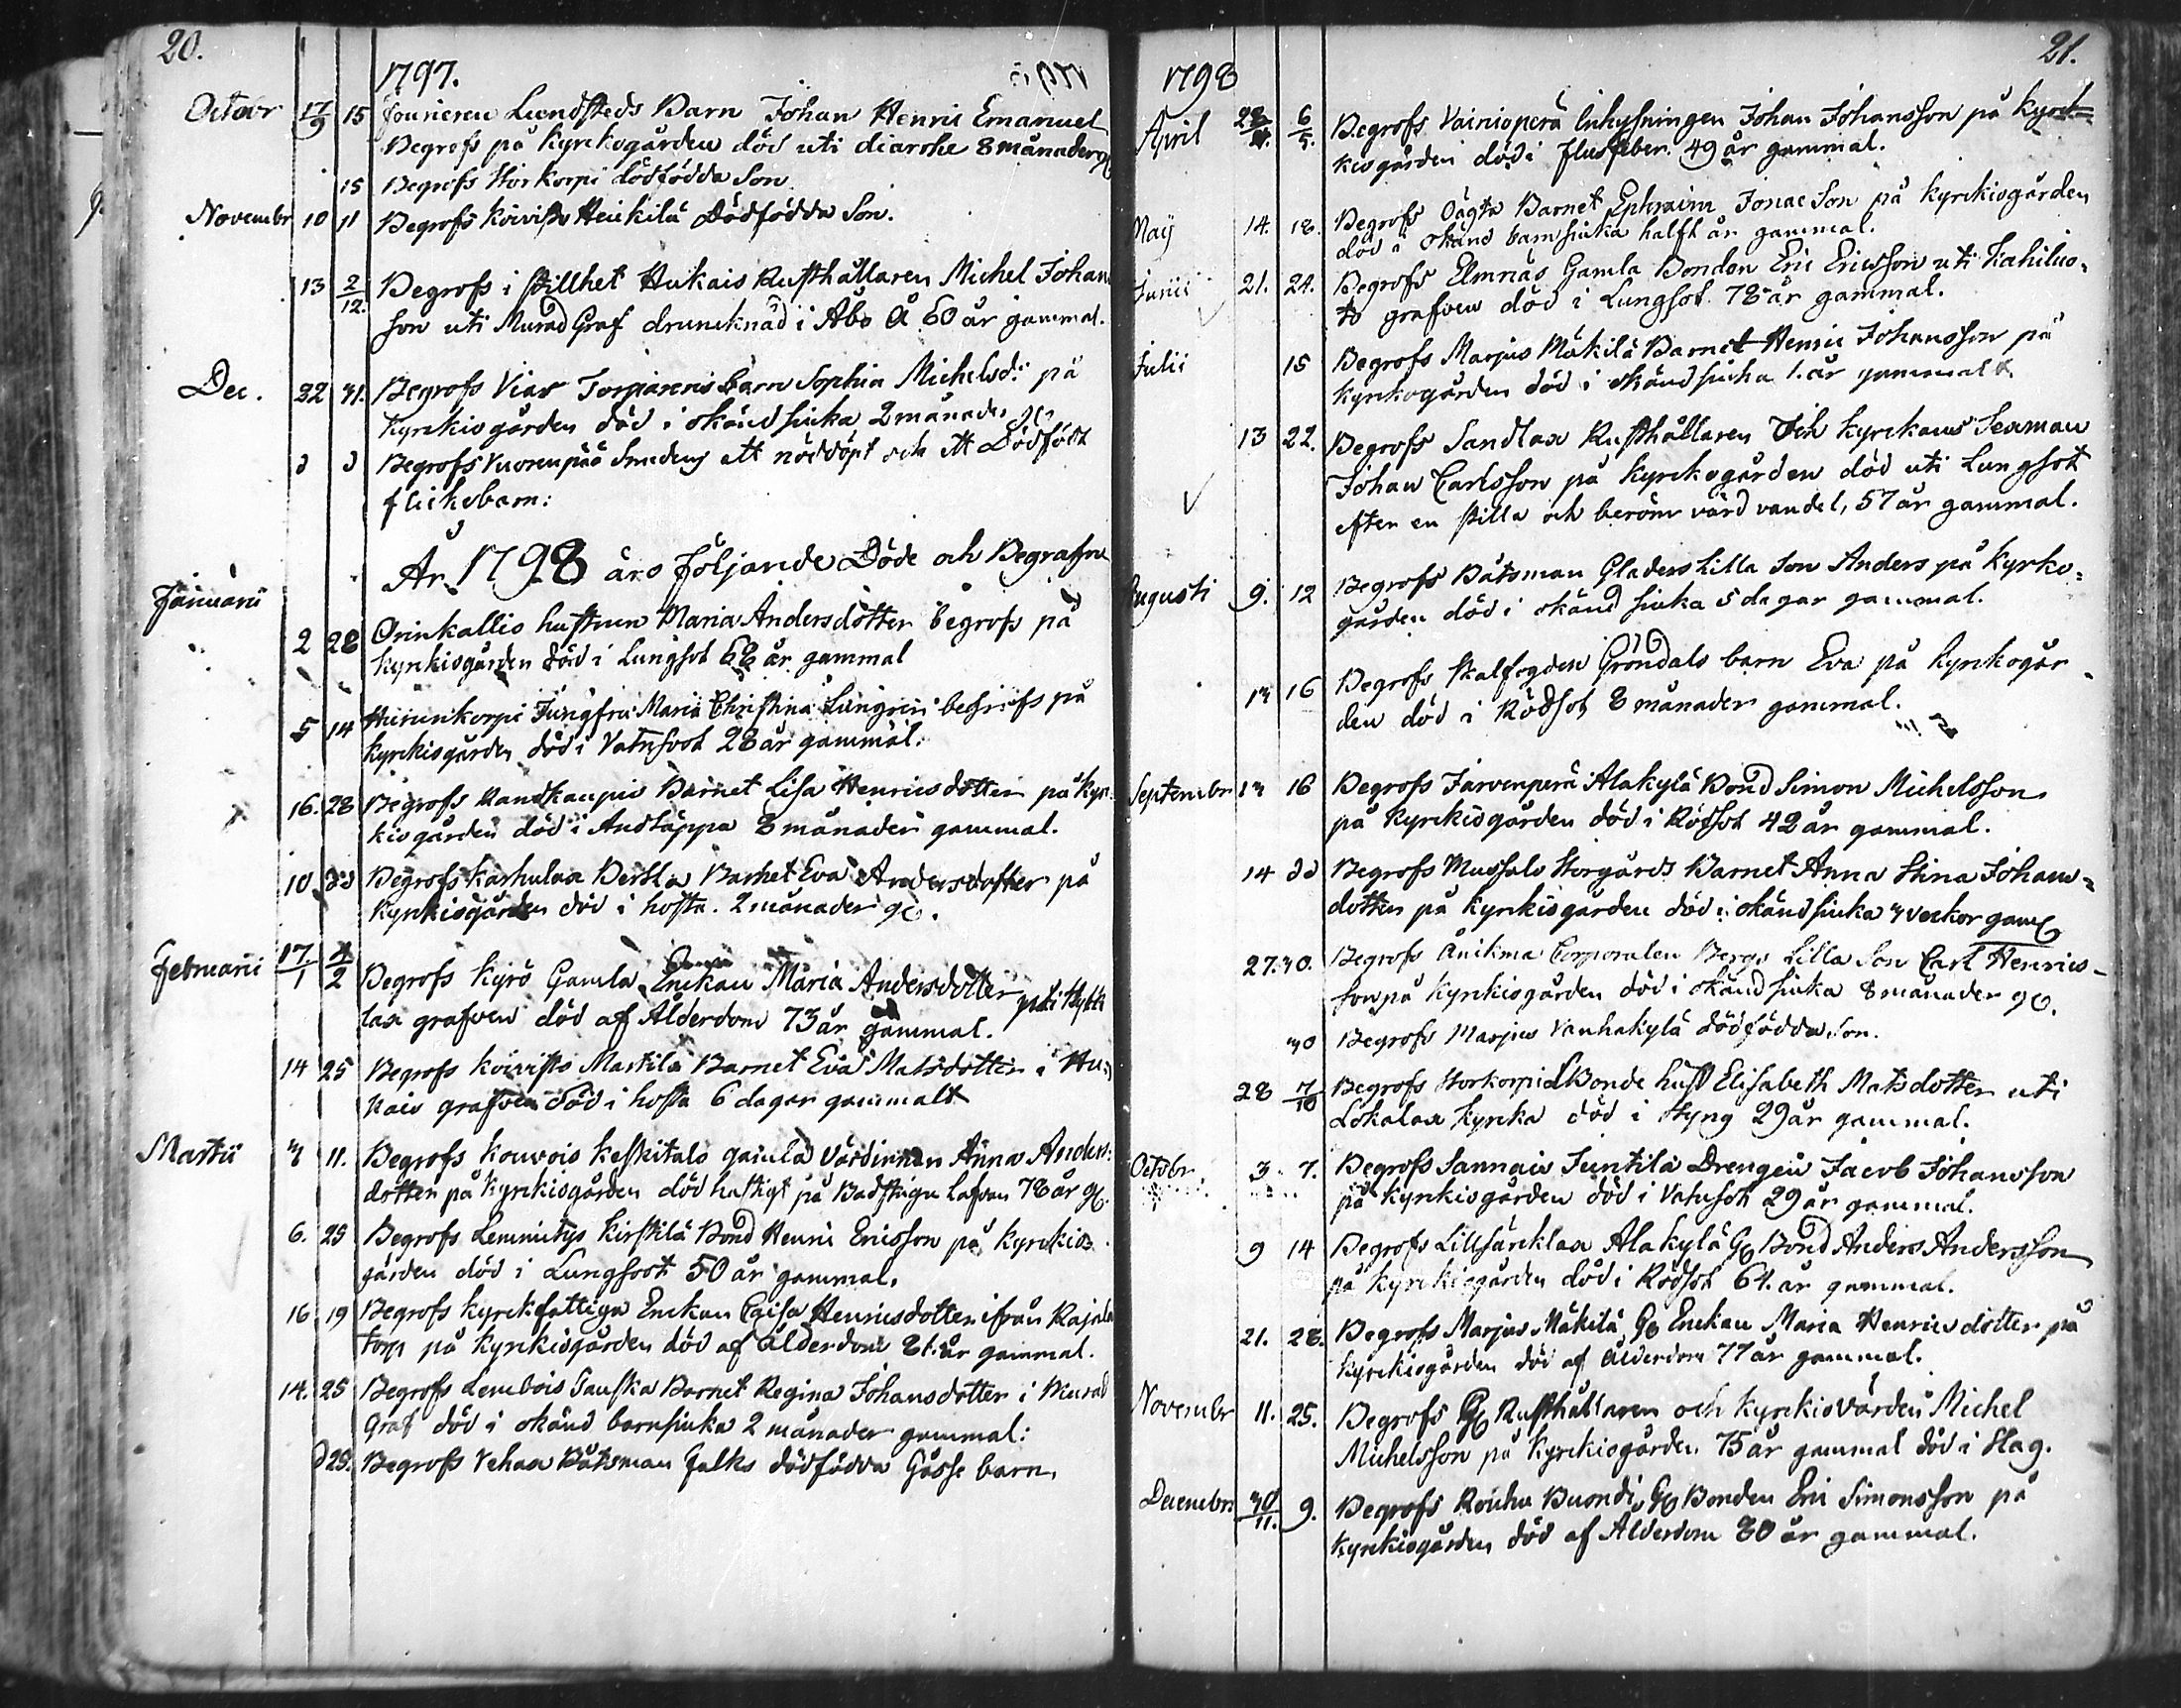 20.
1797.
Octobr 17/9 15 foureren Lundsteds Barn Johan Henric Emanuel
Begrofs på kyrckogården död uti diarrhe 8 månader gl
15 Begrofs Storkorpi dödfödda Son
Novembr 10 11 Begrofs koivisto Heickilä Dödfödda Son.
13 2/12. Begrofs i stillhet Hukais Rusthållaren Michel Johan
son uti Murad Graf druncknad i Åbo Å 60 år gammal.
Dec. 22 31. Begrofs Viar Torparens barn Sophia Michelsd:r på
kyrckiogården död i okänd siuka 2 månader gl
d d Begrofs Vuorenpää Smedens ett nöddöpt och ett Dödfödt
flickobarn:
År 1798 äro följande Döde och Begrafne
Januarii
2 28 Orinkallio hustrun Maria Andersdotter begrofs på
kyrckiogården död i Lungsot 68 år gammal
5 14 Huitunkorpi Jungfru Maria Christina Lungren begrofs på
kyrckiogården död i Vatusoot 28 år gammal.
16. 28 Begrofs Barnet Lisa Henricsdotter på kyr:
kiogården död i Andtäppa 8 månader gammal.
10 dd Begrofs karhulax Perttla Barnet Eva Andersdotter på
kyrckiogården död i hosta. 2 månader gl.
Februarii 17/1 4/2 Begrofs kyrö Gamla Enckan Maria Andersdotter uti
lax grafven död af Ålderdom 73 år gammal.
14 25 Begrofs koivisto Marttila Barnet Eva Matsdotter i Hu-
kais grafven död i hosta 6 dagar gammalt
Martii 3 11. Begrofs kouvois keskitalo gamla Värdinnan Anna Anders:
dotter på kyrckiogården död hastigt på Badstugu lafvan 78 år gl.
6. 25 Begrofs Lemmitys kirstilä Bond Henric Ericsson på kyrckio
gården död i Lungsoot 50 år gammal.
16 19 Begrofs kyrckfattiga Enckan Henricsdotter ifrån Rajala
torp på kyrckiogården död af ålderdom 81. år gammal.
14. 25 Begrofs Lembois Sauska Barnet Regina Johansdotter i Murad
Graf död i okänd barnsiuka 2 månader gammal:
d 25. Begrofs Vehax Båtsman Falks dödfödda Gåsse barn.
21.
1798
April 28/4. 6/5. Begrofs Vainionperä Inhysningen Johan Johansson på kyrck-
kiogården död i flussfeber 49 år gammal.
Maij 14. 18. Begrofs Barnet Ephraim Jonae Son på kyrckiogården
död i okänd barnsiuka halft år gammal.
Junii 21. 24. Begrofs Elmnäs Gamla Bonden Eric Ericsson uti kahiluo-
to grafven död i Lungsot 78 år gammal.
Julii 15 Begrofs Marjus Mäkilä Barnet Henric Johansson på
kyrckogården död i okänd siuka 1. år gammalt
13 22. Begrofs Sandlax Rusthållaren Och kyrckans Sexman
Johan Carlsson på kyrckogården död uti Lungsot
efter en stilla och beröm värd vandel, 57 år gammal.
Augusti 9. 12 Begrofs Båtsman Gladers Lilla Son Anders på kyrko-
gården död i okänd siuka 5 dagar gammal.
13 16 Begrofs Gröndals barn Eva på kyrckogår-
den död i Rödsot 8 månader gammal.
Septembr 13 16 Begrofs Järvenperä Alakylä Bond Simon Michelsson
på kyrckiogården död i Rödsot 42 år gammal.
14 dd Begrofs Mussalo Storgårds Barnet Anna Stina Johans-
dotter på kyrckiogården död i okänd siuka 3 veckor gaml
27. 30. Begrofs Änikma Corporalen Bergs Lilla Son Carl Henrics-
son på kyrckiogården död i okänd siuka 8 månader gl.
30 Begrofs Marjus Vanhakylä dödfödda Son.
28 7/10 Begrofs Storkorpi Bonde hust Elisabeth Matsdotter uti
Lokalax kyrcka död i Styng 29 år gammal.
Octobr 3. 7. Begrofs Sannais Juntila Drengen Jacob Johansson
på kyrckiogården död i Vatusot 29 år gammal.
9 14 Begrofs Lillsärcklax Alakylä Gl Bond Anders Andersson
på kyrckiogården död i Rödsot 61. år gammal.
21. 28. Begrofs Marjus Mäkilä Gl Enckan Maria Henricsdotter på
kyrckiogården död af ålderdom 77 år gammal.
Novembr 11. 25. Begrofs Gl Rusthållaren och kyrckiovärden Michel
Michelsson på kyrckiogården 75 år gammal död i Slag.
Decembr 30/11. 9. Begrofs Rouhu Buondi Gl Bonden Eric Simonsson på
kyrckiogården död af Ålderdom 80 år gammal.